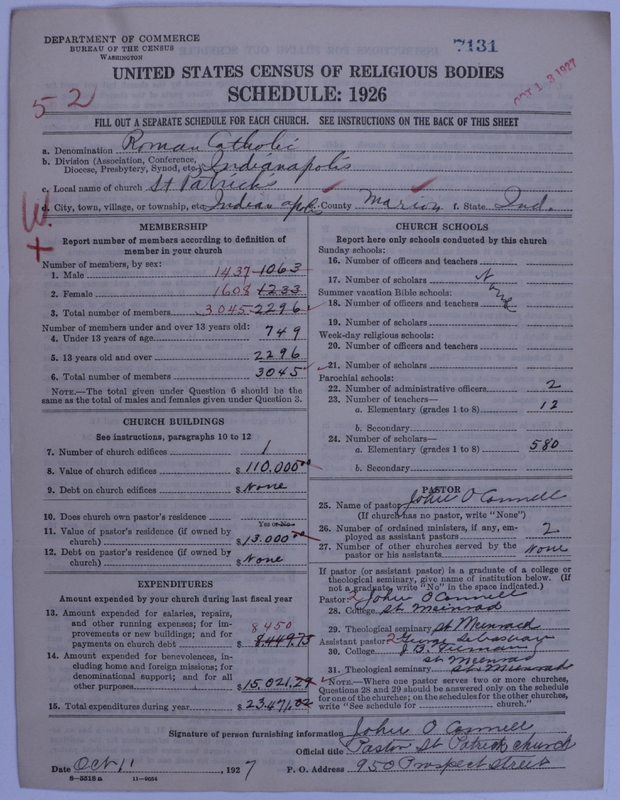 DEPARTMENT OF COMMERCE
BUREAU OF THE CENSUS
WASHINGTON
7131
OCT 13 1927
UNITED STATES CENSUS OF RELIGIOUS BODIES
SCHEDULE: 1926
52
FILL OUT A SEPARATE SCHEDULE FOR EACH CHURCH. SEE INSTRUCTIONS ON THE BACK OF THIS SHEET
a. Denomination Roman Catholic
b. Division (Association, Conference, Diocese, Presbytery, Synod, etc.) Indianapolis
c. Local name of church St Patrick's
d. City, town, village, or township, etc. Indianapolis County Marion f. State Ind.
W.
+
MEMBERSHIP
Report number of members according to definition of
member in your church
Number of members, by sex:
1. Male 1437 1063
2. Female 1608 1233
3. Total number of members 3045 2296
Number of members under and over 13 years old:
4. Under 13 years of age 749
5. 13 years old and over 2296
6. Total number of members 3045
NOTE.—The total given under Question 6 should be the
same as the total of males and females given under Question 3.
CHURCH BUILDINGS
See instructions, paragraphs 10 to 12
7. Number of church edifices 1
8. Value of church edifices $ 110.000 00
9. Debt on church edifices $ None
10. Does church own pastor's residence
Yes or No
11. Value of pastor's residence (if owned by
church) $ 13.000 00
12. Debt on pastor's residence (if owned by
church) $ None
EXPENDITURES
Amount expended by your church during last fiscal year
13. Amount expended for salaries, repairs,
and other running expenses; for im-
provements or new buildings; and for
payments on church debt $ 8450 8.449.73
14. Amount expended for benevolences, in-
cluding home and foreign missions; for
denominational support; and for all
other purposes $ 15.021.29
15. Total expenditures during year $ 23.471.02
CHURCH SCHOOLS
Report here only schools conducted by this church
Sunday schools:
16. Number of officers and teachers
17. Number of scholars None
Summer vacation Bible schools:
18. Number of officers and teachers
19. Number of scholars
Week-day religious schools:
20. Number of officers and teachers
21. Number of scholars
Parochial schools:
22. Number of administrative officers 2
23. Number of teachers—
a. Elementary (grades 1 to 8) 12
b. Secondary
24. Number of scholars—
a. Elementary (grades 1 to 8) 580
b. Secondary
PASTOR
25. Name of pastor John O'Connell
(If church has no pastor, write "None")
26. Number of ordained ministers, if any, em-
ployed as assistant pastors 2
27. Number of other churches served by the
pastor or his assistants None
If pastor (or assistant pastor) is a graduate of a college or
theological seminary, give name of institution below. (If
not a graduate, write "No" in the space indicated.)
Pastor: 2 John O'Connell
28. College St Meinrad
29. Theological seminary St Meinrad
Assistant pastor: 2 George Sebastian
30. College J.B.
St Meinrad
31. Theological seminary St Meinrad
NOTE.—Where one pastor serves two or more churches,
Questions 28 and 29 should be answered only on the schedule
for one of the churches; on the schedules for the other churches,
write "See schedule for church."
Signature of person furnishing information John O'Connell
Official title Pastor St Patricks church
Date Oct 11, 1927 P. O. Address 950 Prospect Street
8-5518a 11-9054